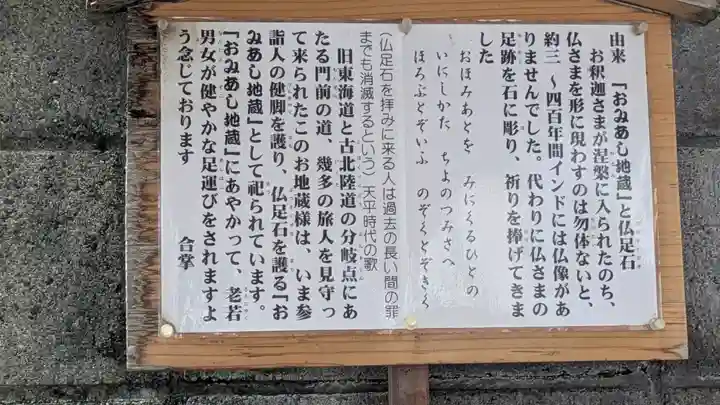 由来 『おみあし地蔵』と仏足石
お釈迦さまが涅槃に入られたのち、
仏さまを形に現わすのは勿体ないと、
約三〜四百年間インドには仏像があ
りませんでした。代わりに仏さまの
足跡を石に彫り、祈りを捧げてきま
した
おほみあとを みにくるひとの
いにしかた ちよのつみさへ
ほろぶとぞいふ のぞくとぞきく
(仏足石を拝みに来る人は過去の長い間の罪
までも消滅するという) 天平時代の歌
旧東海道と古北陸道の分岐点にあ
たる門前の道、幾多の旅人を見守っ
て来られたこのお地蔵様は、いま参
詣人の健脚を護り、仏足石を護る『お
みあし地蔵』として祀られています。
『おみあし地蔵』にあやかって、老若
男女が健やかな足運びをされますよ
う念じております 合掌